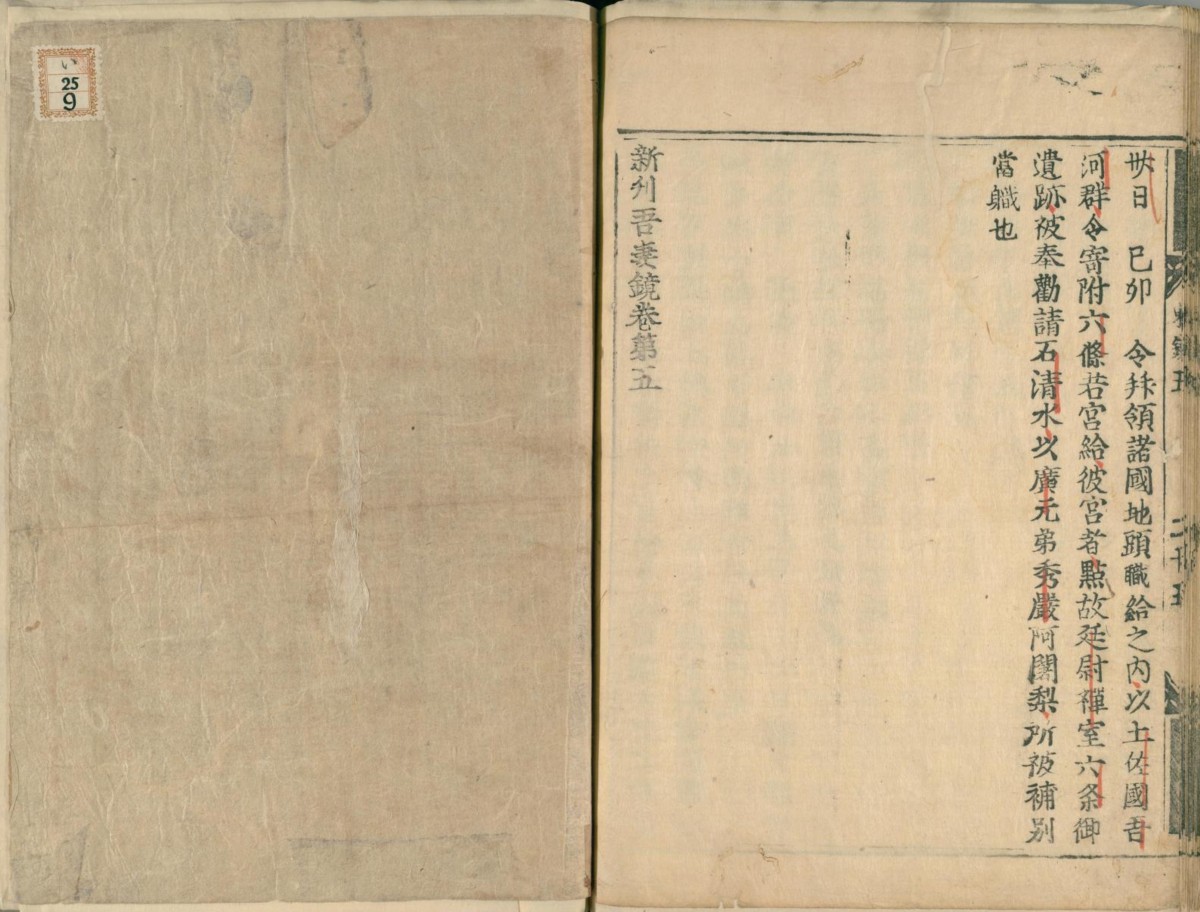 卅日　己卯　令拜領諸國地頭職給之内以土佐國吾
河群令寄附六條若宮給彼宮者點故廷尉禪室六条御
遺跡被奉勸請石清水以廣元弟秀嚴阿闍梨所被補別
當職也
新刋吾妻鏡卷第五
い
25
9